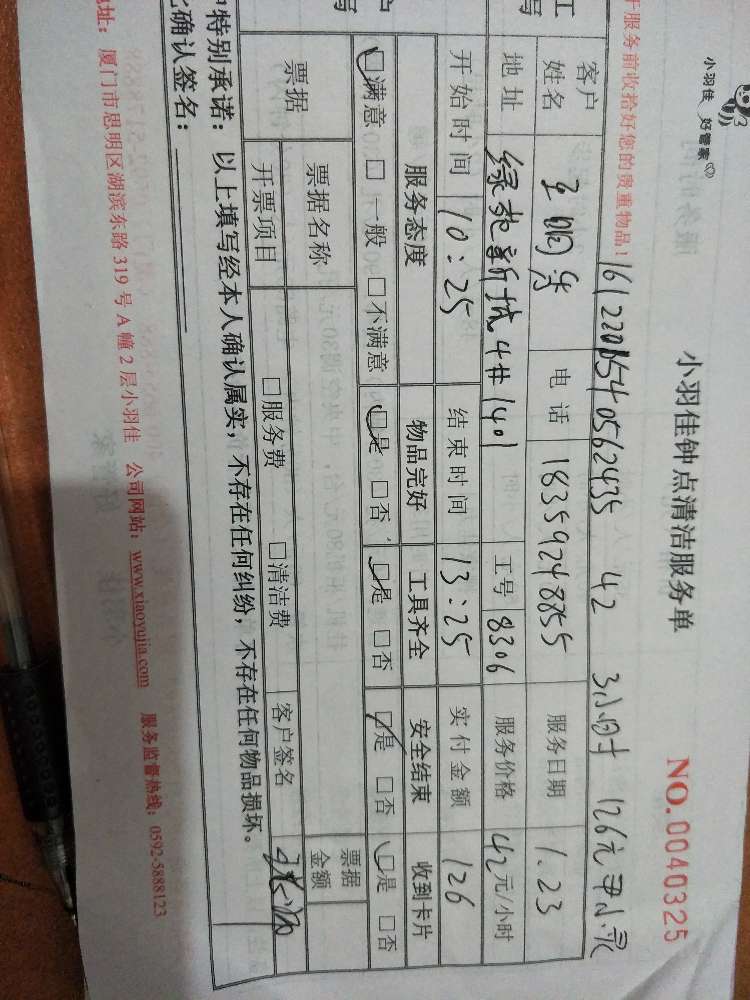 小羽佳 好管家
小羽佳钟点清洁服务单
NO.0040325
于服务前收拾好您的贵重物品!
1612201540562435 42 3小时 126元 尹小灵
客户姓名 王明秀 电话 18359248855 服务日期 1.23
地址 4# 1401 工号 8306 服务价格 42元/小时
开始时间 10:25 结束时间 13:25 实付金额 126
服务态度 物品完好 工具齐全 安全结束 收到卡片
☑满意 □一般 □不满意 ☑是 □否 ☑是 □否 ☑是 □否 ☑是 □否
票据 票据名称 票据金额
开票项目 □服务费 □清洁费 客户签名
特别承诺: 以上填写经本人确认属实,不存在任何纠纷,不存在任何物品损坏。
确认签名:
地址: 厦门市思明区湖滨东路319号A幢2层小羽佳 公司网站: www.xiaoyujia.com 服务监督热线: 0592-5888123